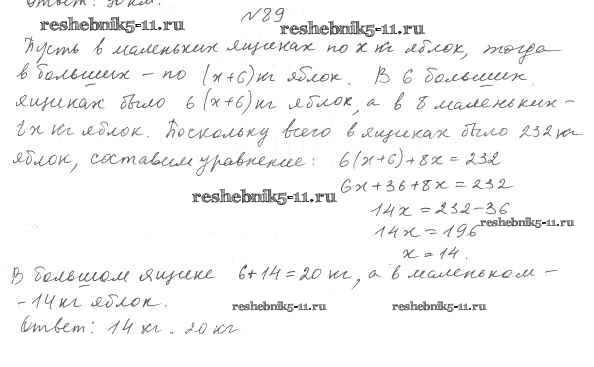 Ответ: 90 км.
reshebnik5-11.ru
№89
reshebnik5-11.ru
Пусть в маленьких ящиках по x кг яблок, тогда
в больших – по (x+6) кг яблок. В 6 больших
ящиках было 6(x+6) кг яблок, а в 8 маленьких –
8x кг яблок. Поскольку всего в ящиках было 232 кг
яблок, составим уравнение: 6(x+6)+8x=232
reshebnik5-11.ru
6x+36+8x=232
14x=232-36
reshebnik5-11.ru
14x=196
x=14.
В большом ящике 6+14=20 кг, а в маленьком –
- 14 кг яблок.
reshebnik5-11.ru
reshebnik5-11.ru
Ответ: 14 кг. 20 кг